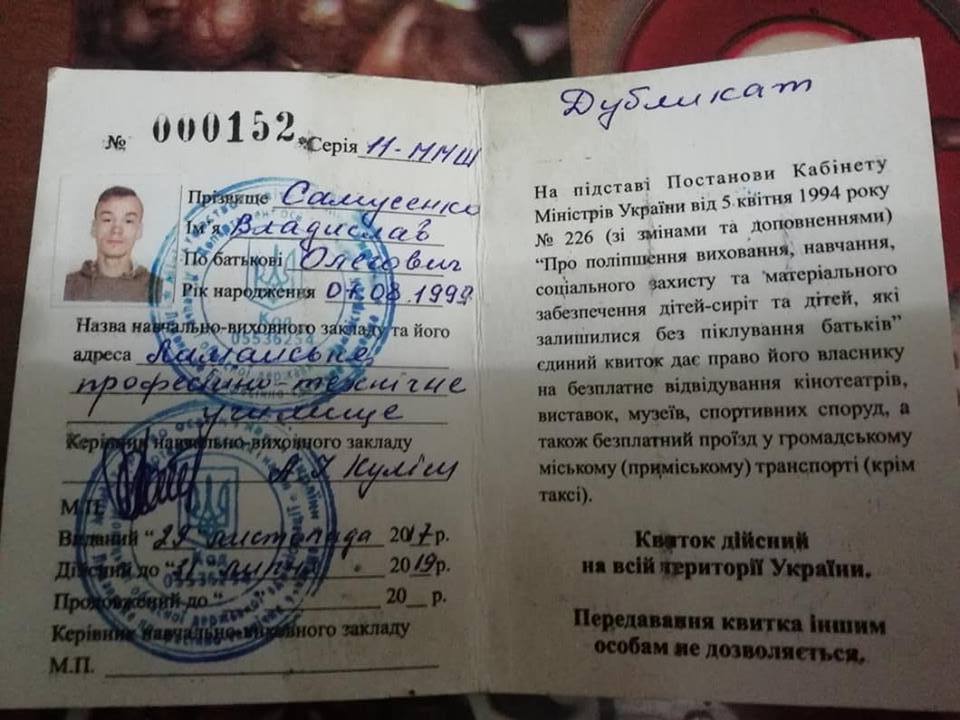 № 000152 Серія 11-ММШ
Прізвище Самусенко
Ім'я Владислав
По батькові Олегович
Рік народження 07.08.1999
Назва навчально-виховного закладу та його
адреса
професійно-технічне
училище
Керівник навчально-виховного закладу
М.П.
Виданий "29" листопада 2017 р.
Дійсний до "31" 2019 р.
Продовжений до " 20 р.
Керівник навчально-виховного закладу
М.П.
Дубликат
На підставі Постанови Кабінету
Міністрів України від 5 квітня 1994 року
№ 226 (зі змінами та доповненнями)
“Про поліпшення виховання, навчання,
соціального захисту та матеріального
забезпечення дітей-сиріт та дітей, які
залишилися без піклування батьків”
єдиний квиток дає право його власнику
на безплатне відвідування кінотеатрів,
виставок, музеїв, спортивних споруд, а
також безплатний проїзд у громадському
міському (приміському) транспорті (крім
таксі).
Квиток дійсний
на всій території України.
Передавання квитка іншим
особам не дозволяється.